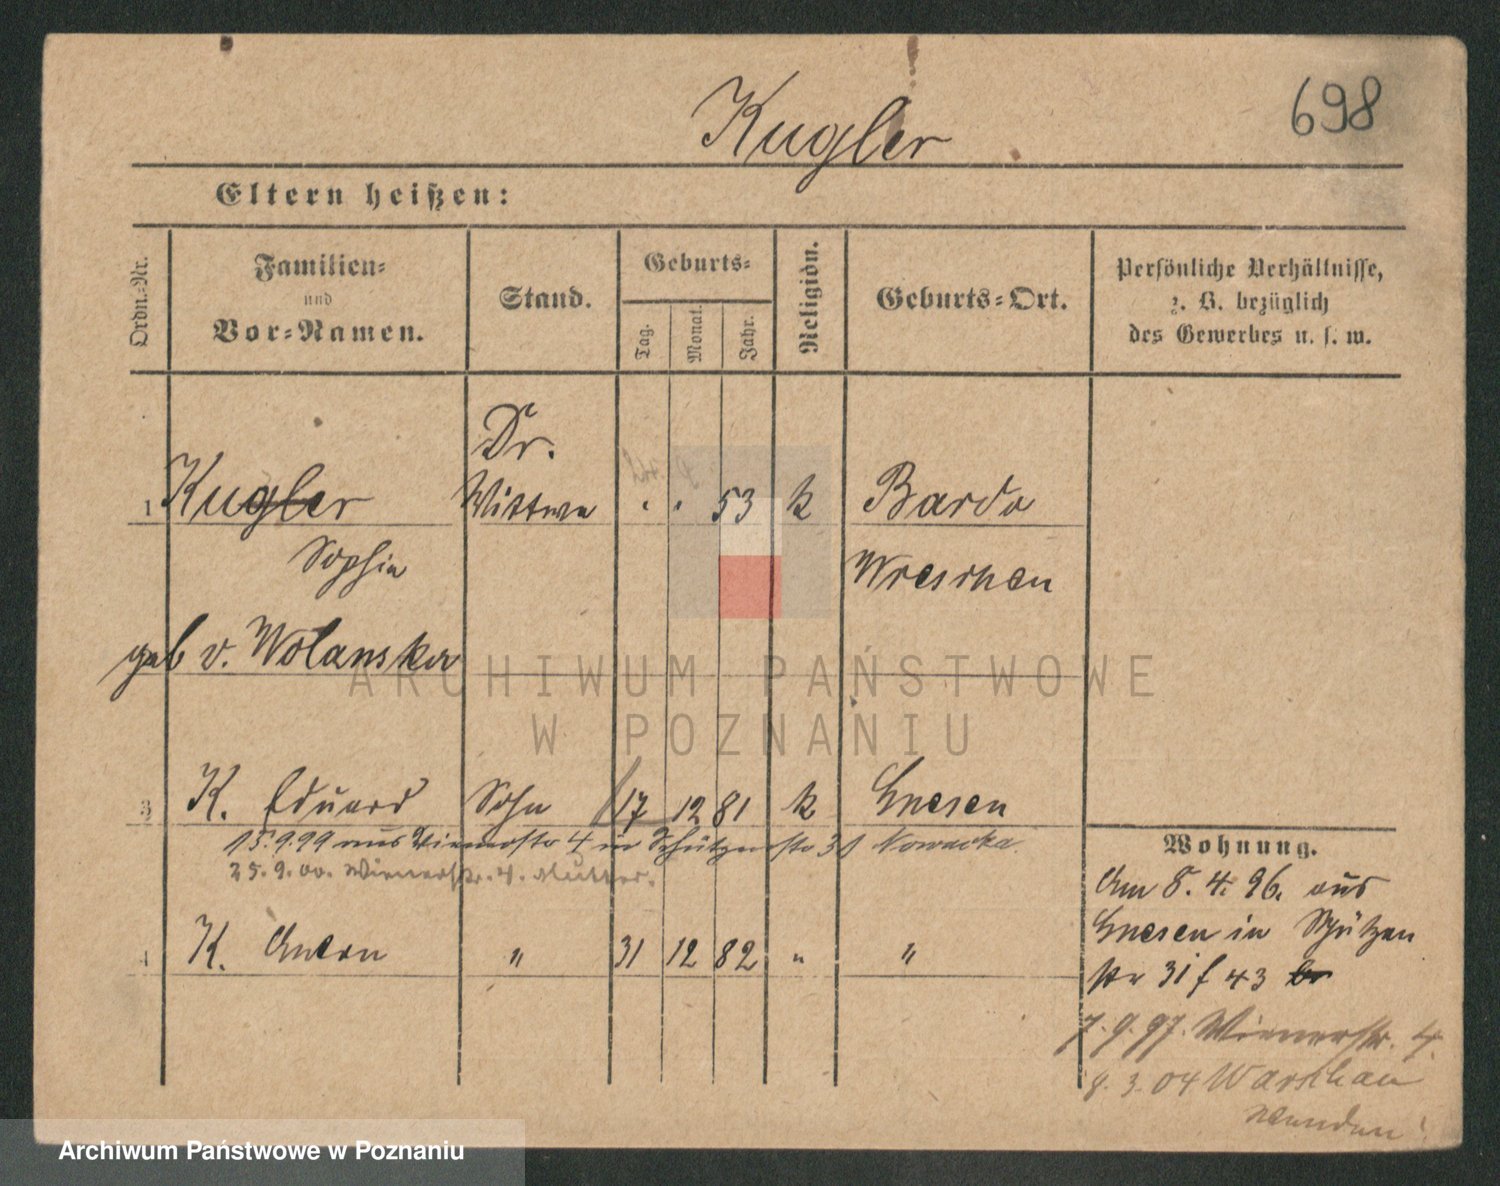 Kugler
698
Eltern heißen:
Ordn.-Nr.
Familien-
und
Vor-Namen.
Stand.
Geburts-
Tag.
Monat.
Jahr.
Religion.
Geburts-Ort.
Persönliche Verhältnisse,
z. B. bezüglich
des Gewerbes u. s. w.
Dr.
1 Kugler Wittwe " " 53 k Bardo
Sophie Wreschen
geb v. Wolanska
3 K. Eduard Sohn 17 12 81 k Gnesen
15.9.99 aus Wienerstr 4 in Schützenstr 31 Nowacka
25.9.00. Wienerstr. 4. Mutter.
4 K. Anton " 31 12 82 " "
Wohnung.
Am 8. 4. 96. aus
Gnesen in Schützen
str 31 f 43
7.9.97. Wienerstr. 4.
8.3.04 Warschau
ARCHIWUM PAŃSTWOWE
W POZNANIU
Archiwum Państwowe w Poznaniu